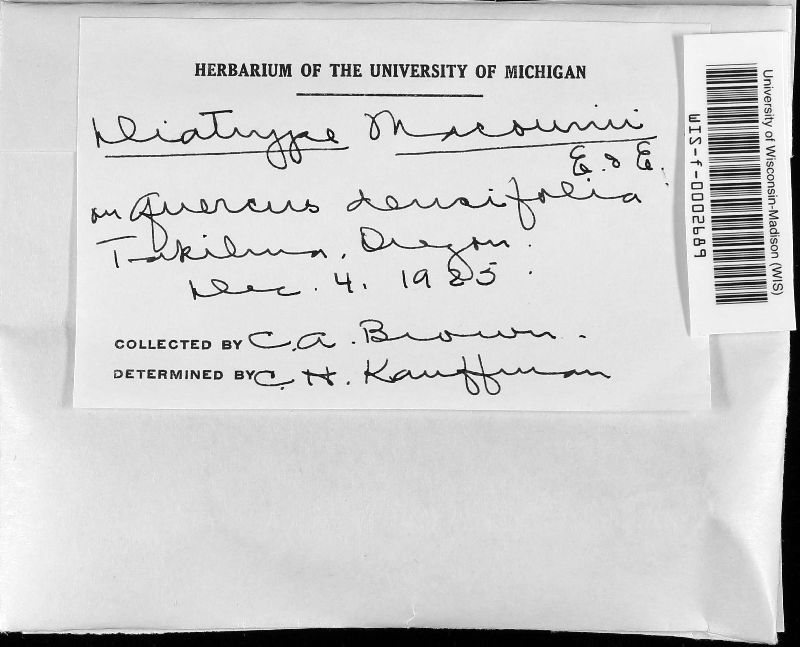 HERBARIUM OF THE UNIVERSITY OF MICHIGAN
Diatrype Macounii
E. & E.
on Quercus densifolia
Takilma, Oregon.
Dec. 4. 1925.
COLLECTED BY C. A. Brown.
DETERMINED BY C. H. Kauffman
University of Wisconsin-Madison (WIS)
WIS-f-0002689